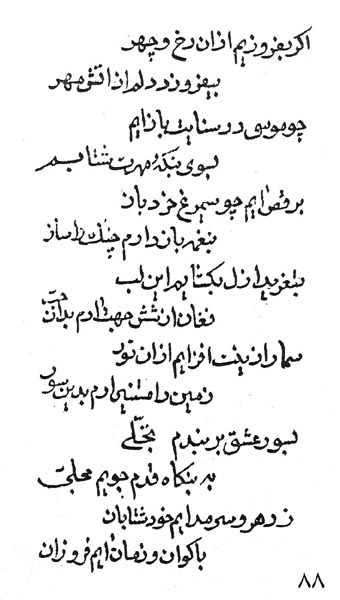 اگر بفروزیم از ان رخ و چهر
بیفروزد دلم از اتش مهر
چو موسی در سنایت باز ایم
بسوی بنگه مهرت شتابم
برقص ایم چو سیمرغ خرد باز
بنغمه باز دارم چنگ را ساز
بتغرید ازل بگشایم این لب
فغان از شش جهت ارم بدان
سما را زینت افزایم از ان نور
زمین را مستنیر ارم بدین سور
بسور عشق بربندم تجلّی
به بنگاه قدم جویم محلّی
ز دهر و سرمد ایم خود شتابان
با کوان و زمان ایم فروزان
۸۸